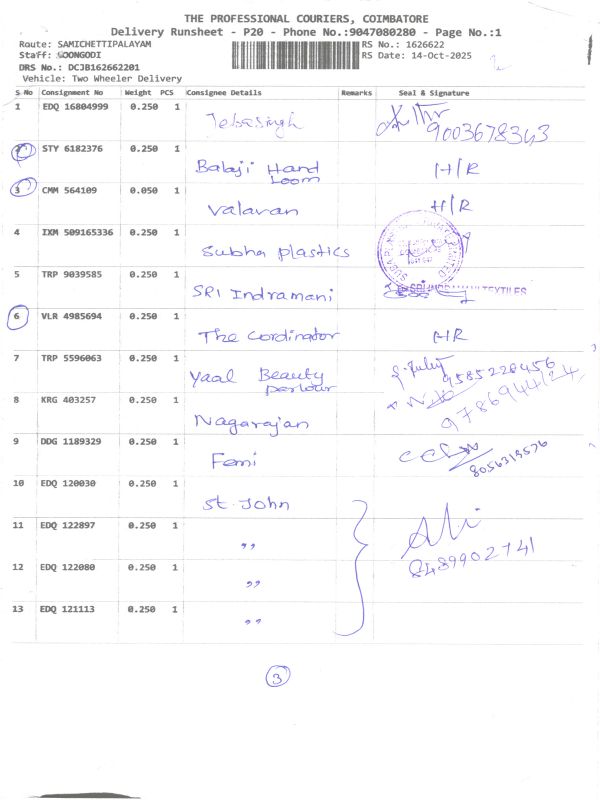 THE PROFESSIONAL COURIERS, COIMBATORE
Delivery Runsheet - P20 - Phone No.:9047080280 - Page No.:1
Route: SAMICHETTIPALAYAM RS No.: 1626622
Staff: GOONGODI RS Date: 14-Oct-2025
DRS No.: DCJB162662201
Vehicle: Two Wheeler Delivery
2
S No Consignment No Weight PCS Consignee Details Remarks Seal & Signature
1 EDQ 16804999 0.250 1 Jebasingh 9003678343
2 STY 6182376 0.250 1 Balaji Hand Loom H/R
3 CMM 564109 0.050 1 Valavan H/R
4 IXM 509165336 0.250 1 Subha plastics
5 TRP 9039585 0.250 1 SRI Indramani TEXTILES
6 VLR 4985694 0.250 1 The Cordinator HR
7 TRP 5596063 0.250 1 Yaal Beauty parlour 9585228456
8 KRG 403257 0.250 1 Nagarajan 9786944124
9 DDG 1189329 0.250 1 Femi 8056313576
10 EDQ 120030 0.250 1 St. John
11 EDQ 122897 0.250 1 ,,
12 EDQ 122080 0.250 1 ,, 8489902741
13 EDQ 121113 0.250 1 ,,
3